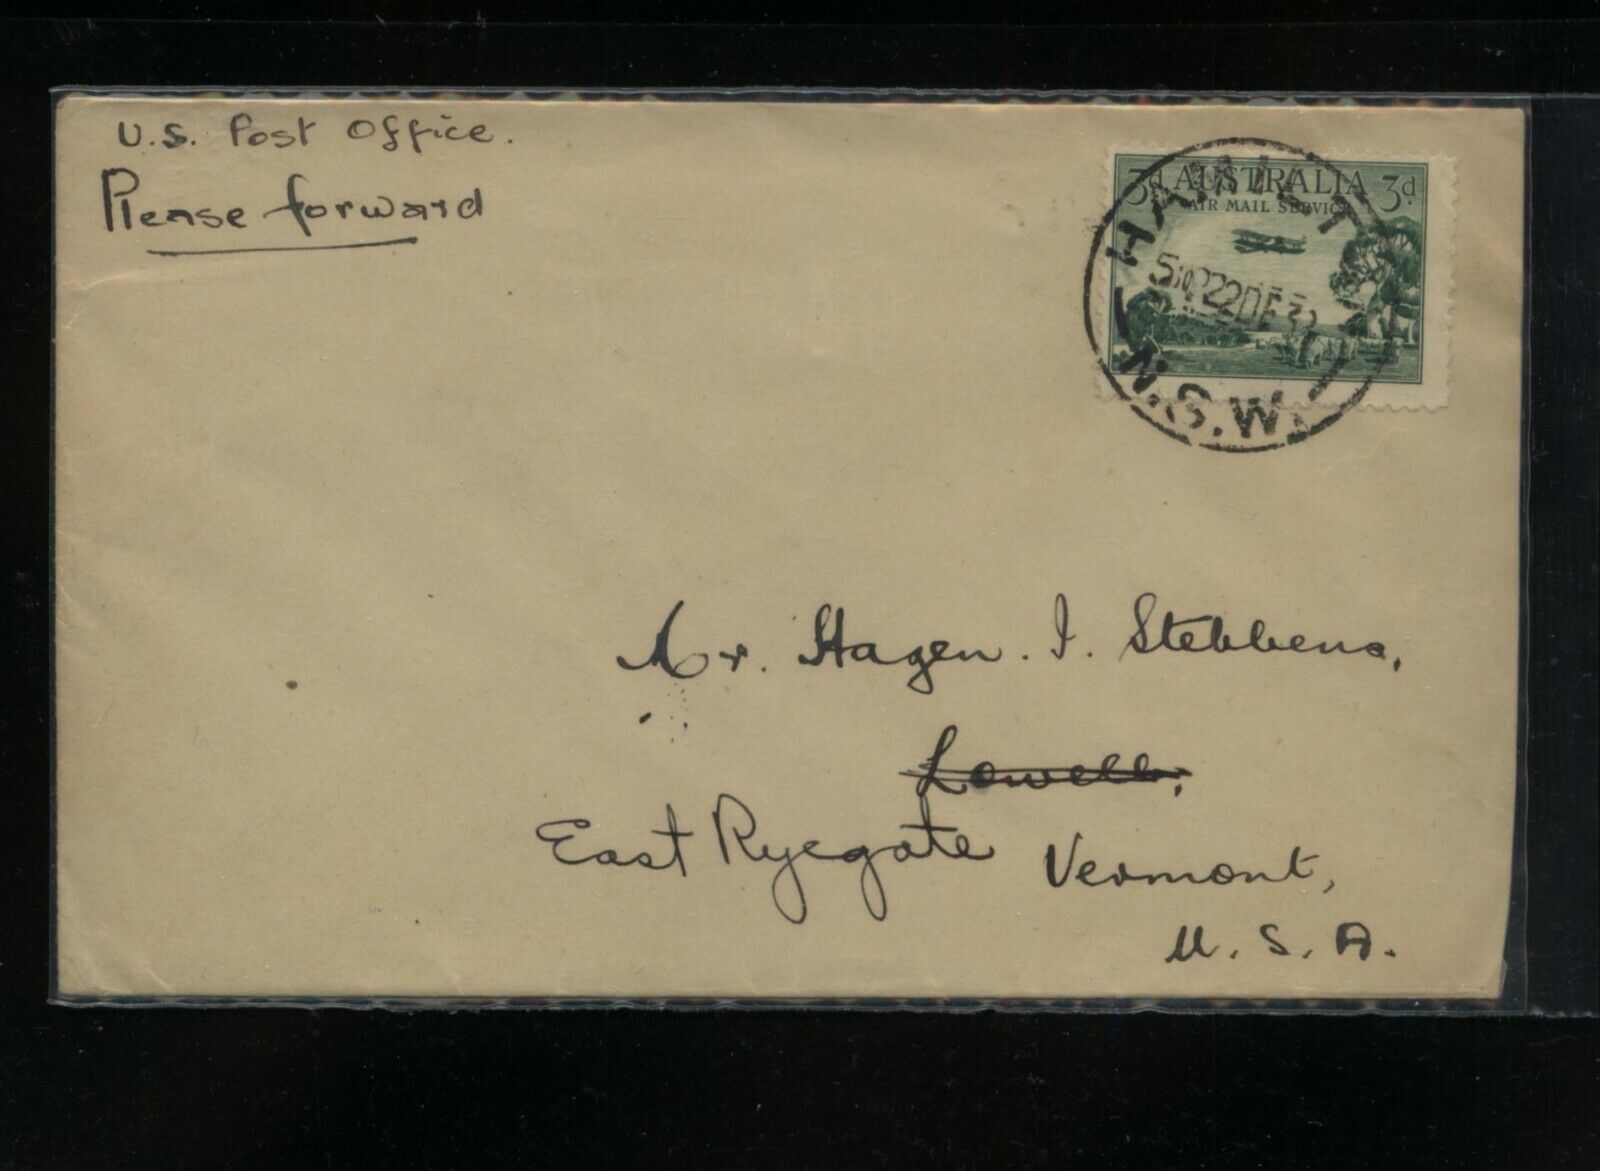 U.S. Post Office.
Please forward
3d AUSTRALIA 3d
AIR MAIL SERVICE
22 DE 3
N.S.W.
Mr. Hagen. I. Stebbens,
Lowell,
East Ryegate Vermont,
U. S. A.